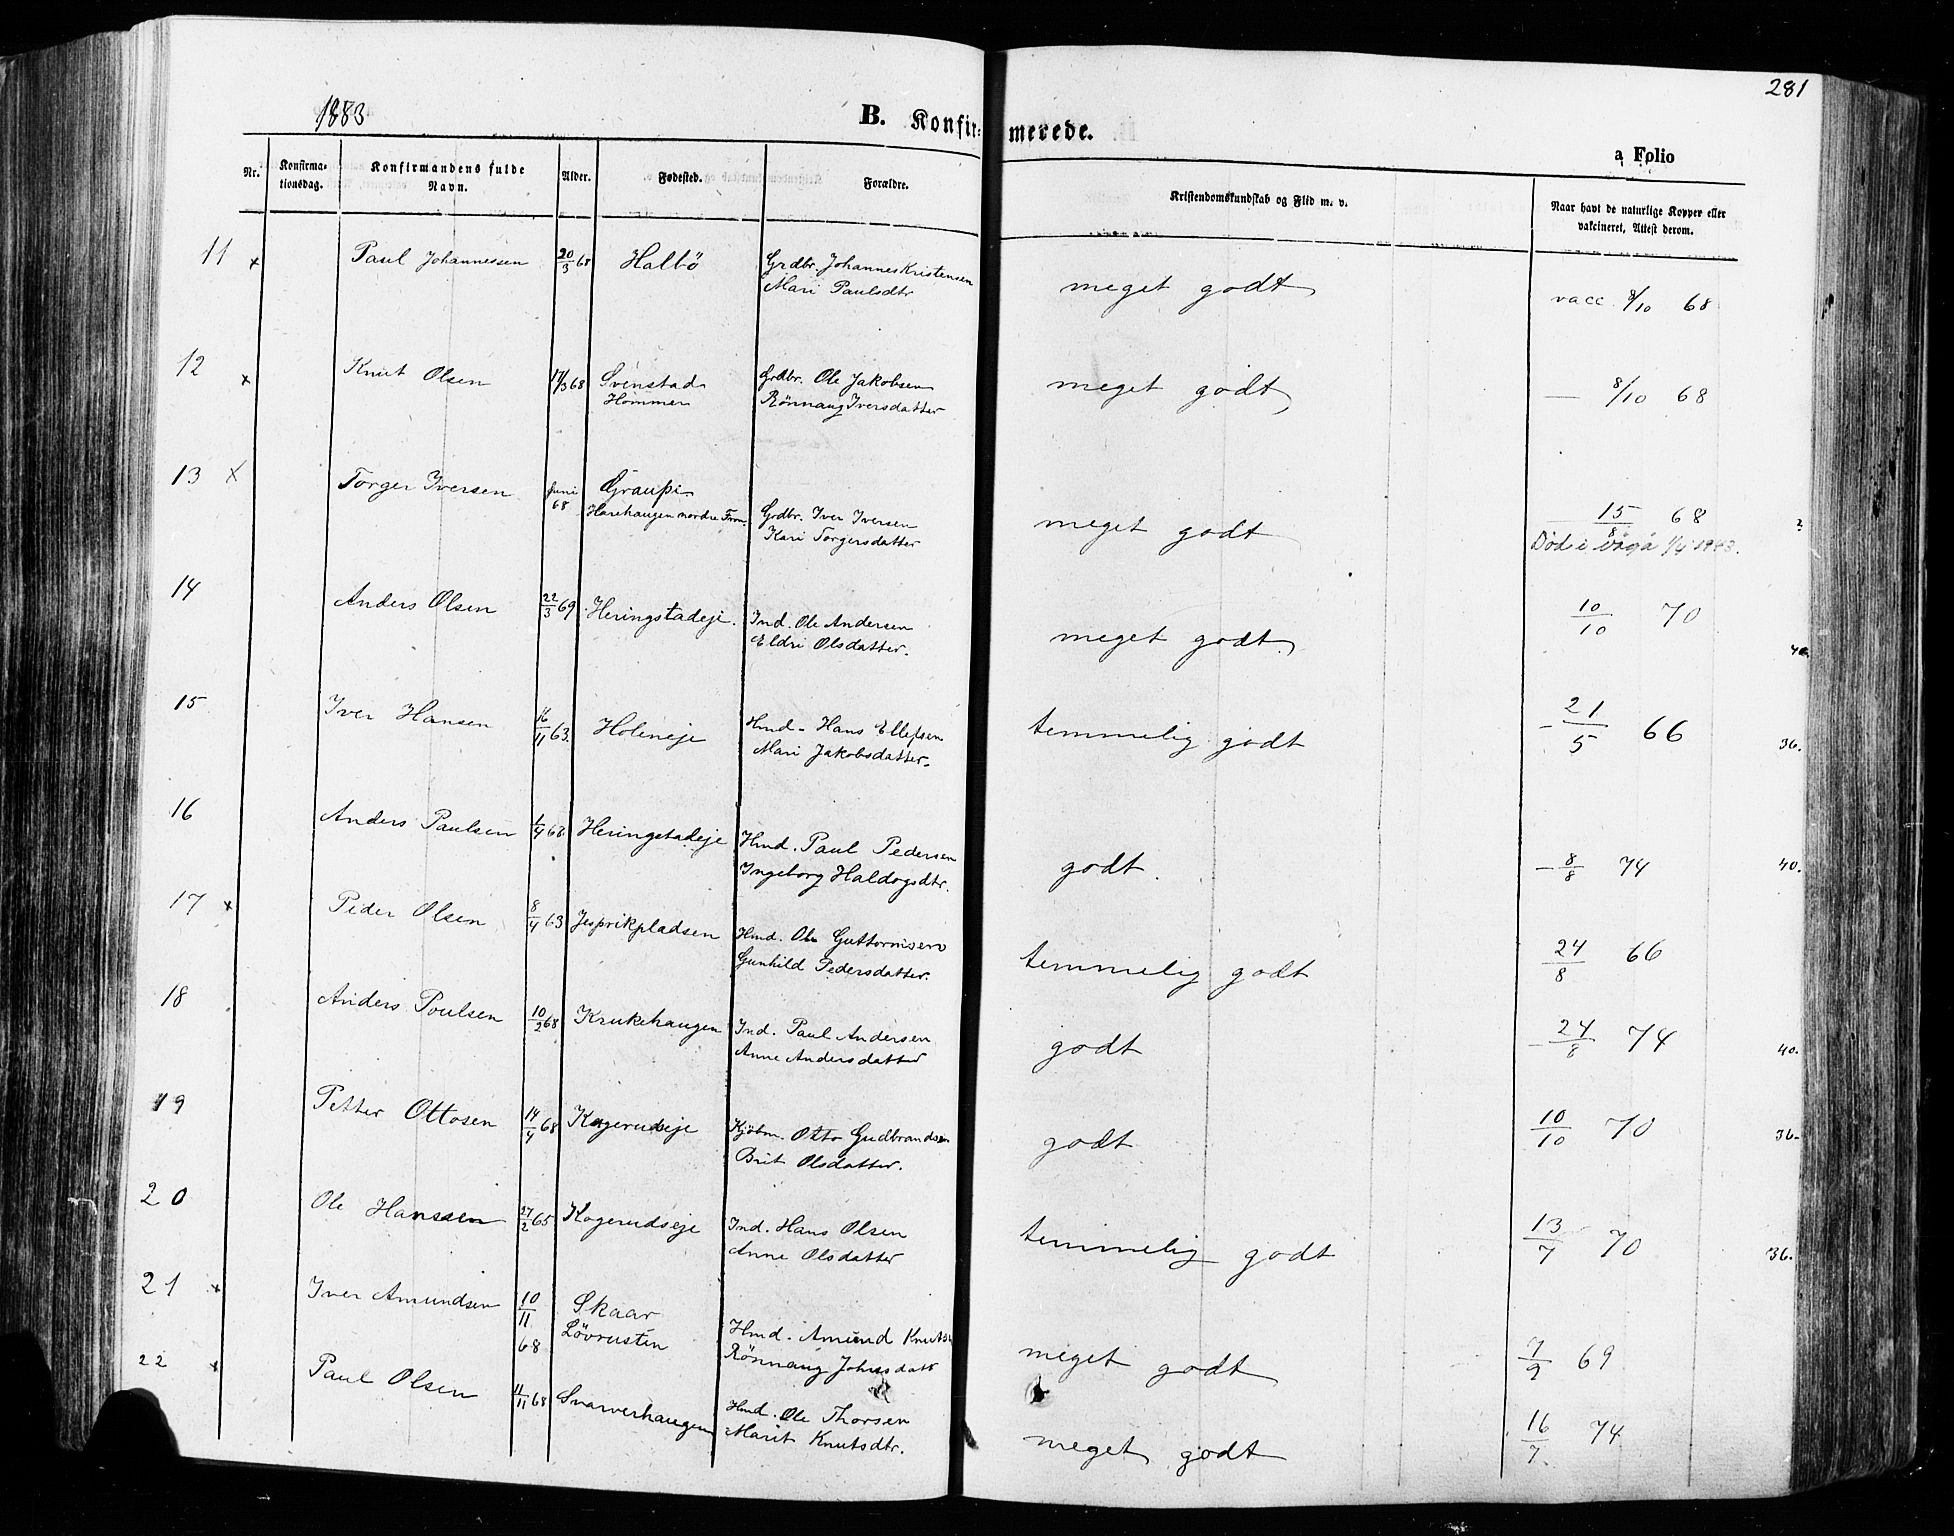 281
1883
B. Konfir= merede.
a Folio
Nr. Konfirma-tionsdag. Konfirmandens fulde Navn. Alder. Fødested. Forældre. Kristendomskundskab og Flid m. v. Naar havt de naturlige Kopper eller vakcineret, Attest derom.
11 x Paul Johannessen 20/3 68 Halbö Grdbr. Johannes Kristensen meget godt vacc. 8/10 68
Mari Paulsdtr
12 x Knut Olsen 17/3 68 Svenstad Grdbr. Ole Jakobsen meget godt — 8/10 68
Hommen Rönnaug Iversdatter
13 x Torger Iversen Juni 68 Graupi Grdbr. Iver Iversen meget godt 15/8 68
Harehaugen nordre Fron. Kari Torgersdatter Död i Vågå
14 Anders Olsen 22/3 69 Heringstadeje. Ind. Ole Andersen meget godt. 10/10 70
Eldri Olsdatter.
15 Iver Hansen 16/11 63. Holeneje Hmd. Hans Ellefsen temmelig godt - 21/5 66 36.
Mari Jakobsdatter.
16 Anders Paulsen 1/4 68. Heringstadeje Hmd. Paul Pedersen godt. - 8/8 74 40.
Ingeborg Haldogsdtr.
17 x Peder Olsen 8/4 63 Jesprikpladsen Hmd. Ole Guttormsen temmelig godt 24/8 66
Gunhild Pedersdatter.
18 Anders Poulsen 10/2 68 Krukehaugen Ind. Paul Andersen godt - 24/8 74 40.
Anne Andersdatter
19 Petter Ottosen 14/4 68 Kogerudseje Kjöbm. Otto Gudbrandsen godt 10/10 70 36.
Brit Olsdatter.
20 Ole Hanssen 27/2 65 Kogerudseje Ind. Hans Olsen temmelig godt 13/7 70 36.
Anne Olsdatter
21 x Iver Amundsen 10/11 68 Skaar Hmd. Amund Knuts meget godt 7/9 69
Lövrusten Rönnaug Johnsdatt
22 x Paul Olsen 11/11 68 Svarverhaugen Hmd. Ole Thorsen meget godt 16/7. 74
Marit Knutsdtr.